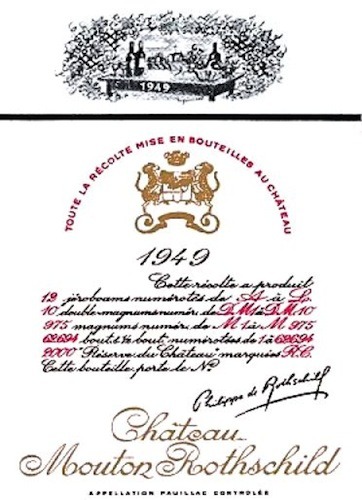 1949
TOUTE LA RÉCOLTE MISE EN BOUTEILLES AU CHÂTEAU
1949
Cette récolte a produit
12 jéroboams numérotés de A à L.
10 double magnums numér. de D.M 1 à D.M 10
975 magnums numér. de M 1 à M 975
62694 bout. & ½ bout. numérotées de 1 à 62694
2000 "Réserve du Château" marquées R.C.
Cette bouteille porte le No
Philippe de Rothschild
Château
Mouton Rothschild
APPELLATION PAUILLAC CONTRÔLÉE